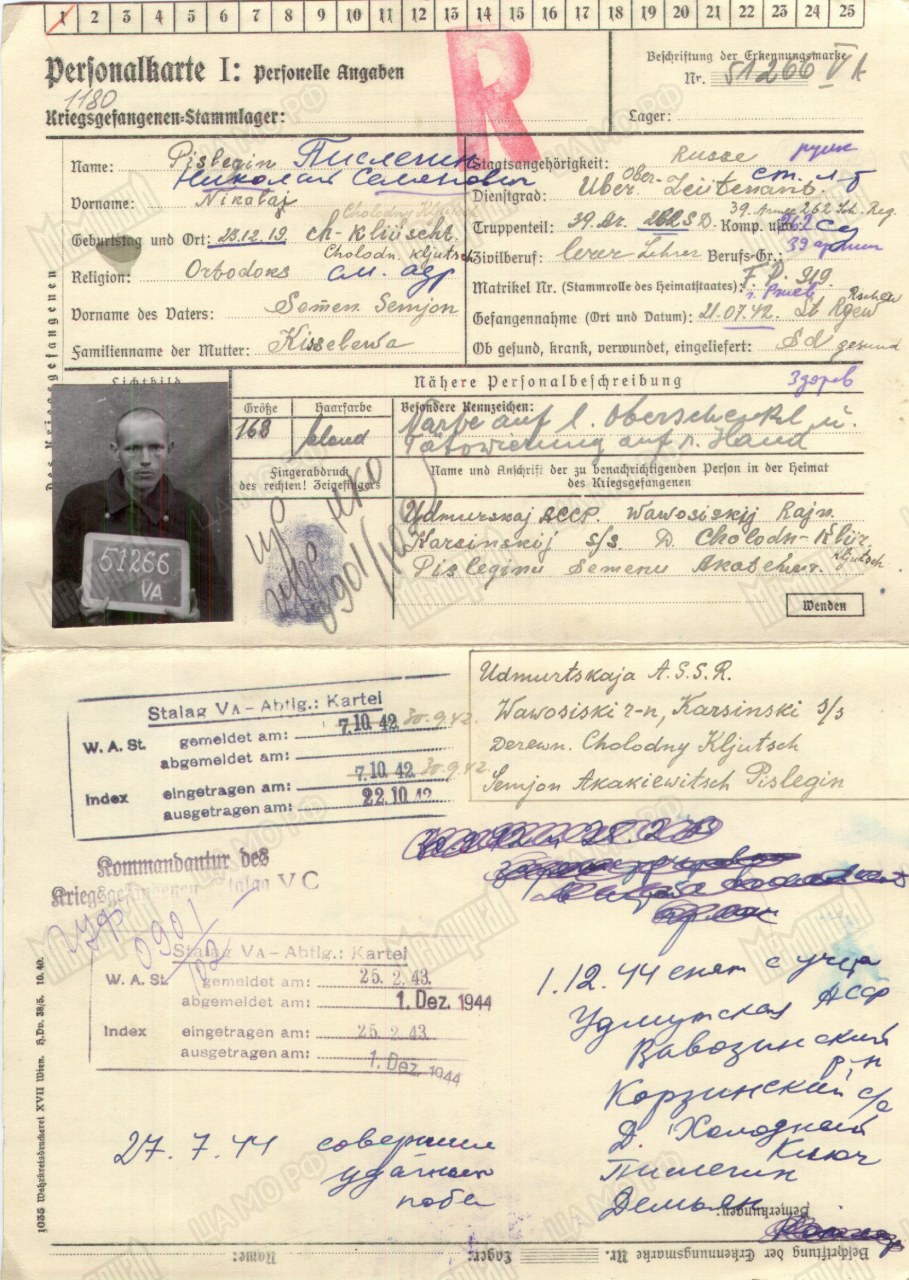 1 2 3 4 5 6 7 8 9 10 11 12 13 14 15 16 17 18 19 20 21 22 23 24 25
Personalkarte I: Personelle Angaben
1180
Kriegsgefangenen-Stammlager:
R
Beschriftung der Erkennungsmarke
Nr. 51266 VA
Lager:
Des Kriegsgefangenen
Name: Pislegin Пислегин
Николай Семенович
Vorname: Nikolaj
Cholodny Kljutsch
Geburtstag und Ort: 25.12.19. ch-Kliuscht.
Cholodn. Kljutsch
Religion: Ortodoks см. адр
Vorname des Vaters: Semen Semjon
Familienname der Mutter: Kisselewa
Staatsangehörigkeit: Russe русск
Dienstgrad: Uber. Ober- Leutenant. ст. л-т
39. Armee 262 Sch. Reg.
Truppenteil: 39. Ar. 262 S.D. Komp. usw. 262 сд
39 армии
Zivilberuf: Lehrer Berufs-Gr.:
Matrikel Nr. (Stammrolle des Heimatstaates): F.P. 919
г. Ржев Rschew
Gefangennahme (Ort und Datum): 21.07.42. St Rgew
Ob gesund, krank, verwundet, eingeliefert: gesund
Здоров
Lichtbild
Nähere Personalbeschreibung
Größe Haarfarbe Besondere Kennzeichen:
168 blond Narbe auf l. Oberschenkel u.
Tätowierung auf r. Hand
Fingerabdruck
des rechten! Zeigefingers
Name und Anschrift der zu benachrichtigenden Person in der Heimat
des Kriegsgefangenen
51266
VA
Udmurskaj ACCP. Wawosiskij Rajn.
Karsinskij s/s. D. Cholodn-Kljur.
Kljutsch
Pisleginu Semenu
Wenden
Udmurtskaja A.S.S.R.
Wawosiski r-n, Karsinski s/s
Derewn. Cholodny Kljutsch
Semjon Akakiewitsch Pislegin
Stalag VA – Abtlg.: Kartei
W. A. St. gemeldet am: 7.10.42 30.9.42.
abgemeldet am:
Index eingetragen am: 7.10.42 30.9.42
ausgetragen am: 22.10.42
Kommandantur des
Kriegsgefangenen Stalag V C
0901/
102
Stalag VA – Abtlg.: Kartei
W. A. St. gemeldet am: 25. 2. 43.
abgemeldet am: 1. Dez. 1944
Index eingetragen am: 25. 2. 43.
ausgetragen am: 1. Dez. 1944
1.12.44 снят с учета
Удмутская АССР
Вавозинский
р-н
Корзинский с/с
Д. Холодный
Ключ
Пислегин
Демьян
27.7.44 совершил
удачный
побег
1035 Wehrkreisdruckerei XVII Wien. H.Dv. 38/5. 10. 40.
Bemerkungen:
Beschriftung der Erkennungsmarke Nr.
Lager:
Name: